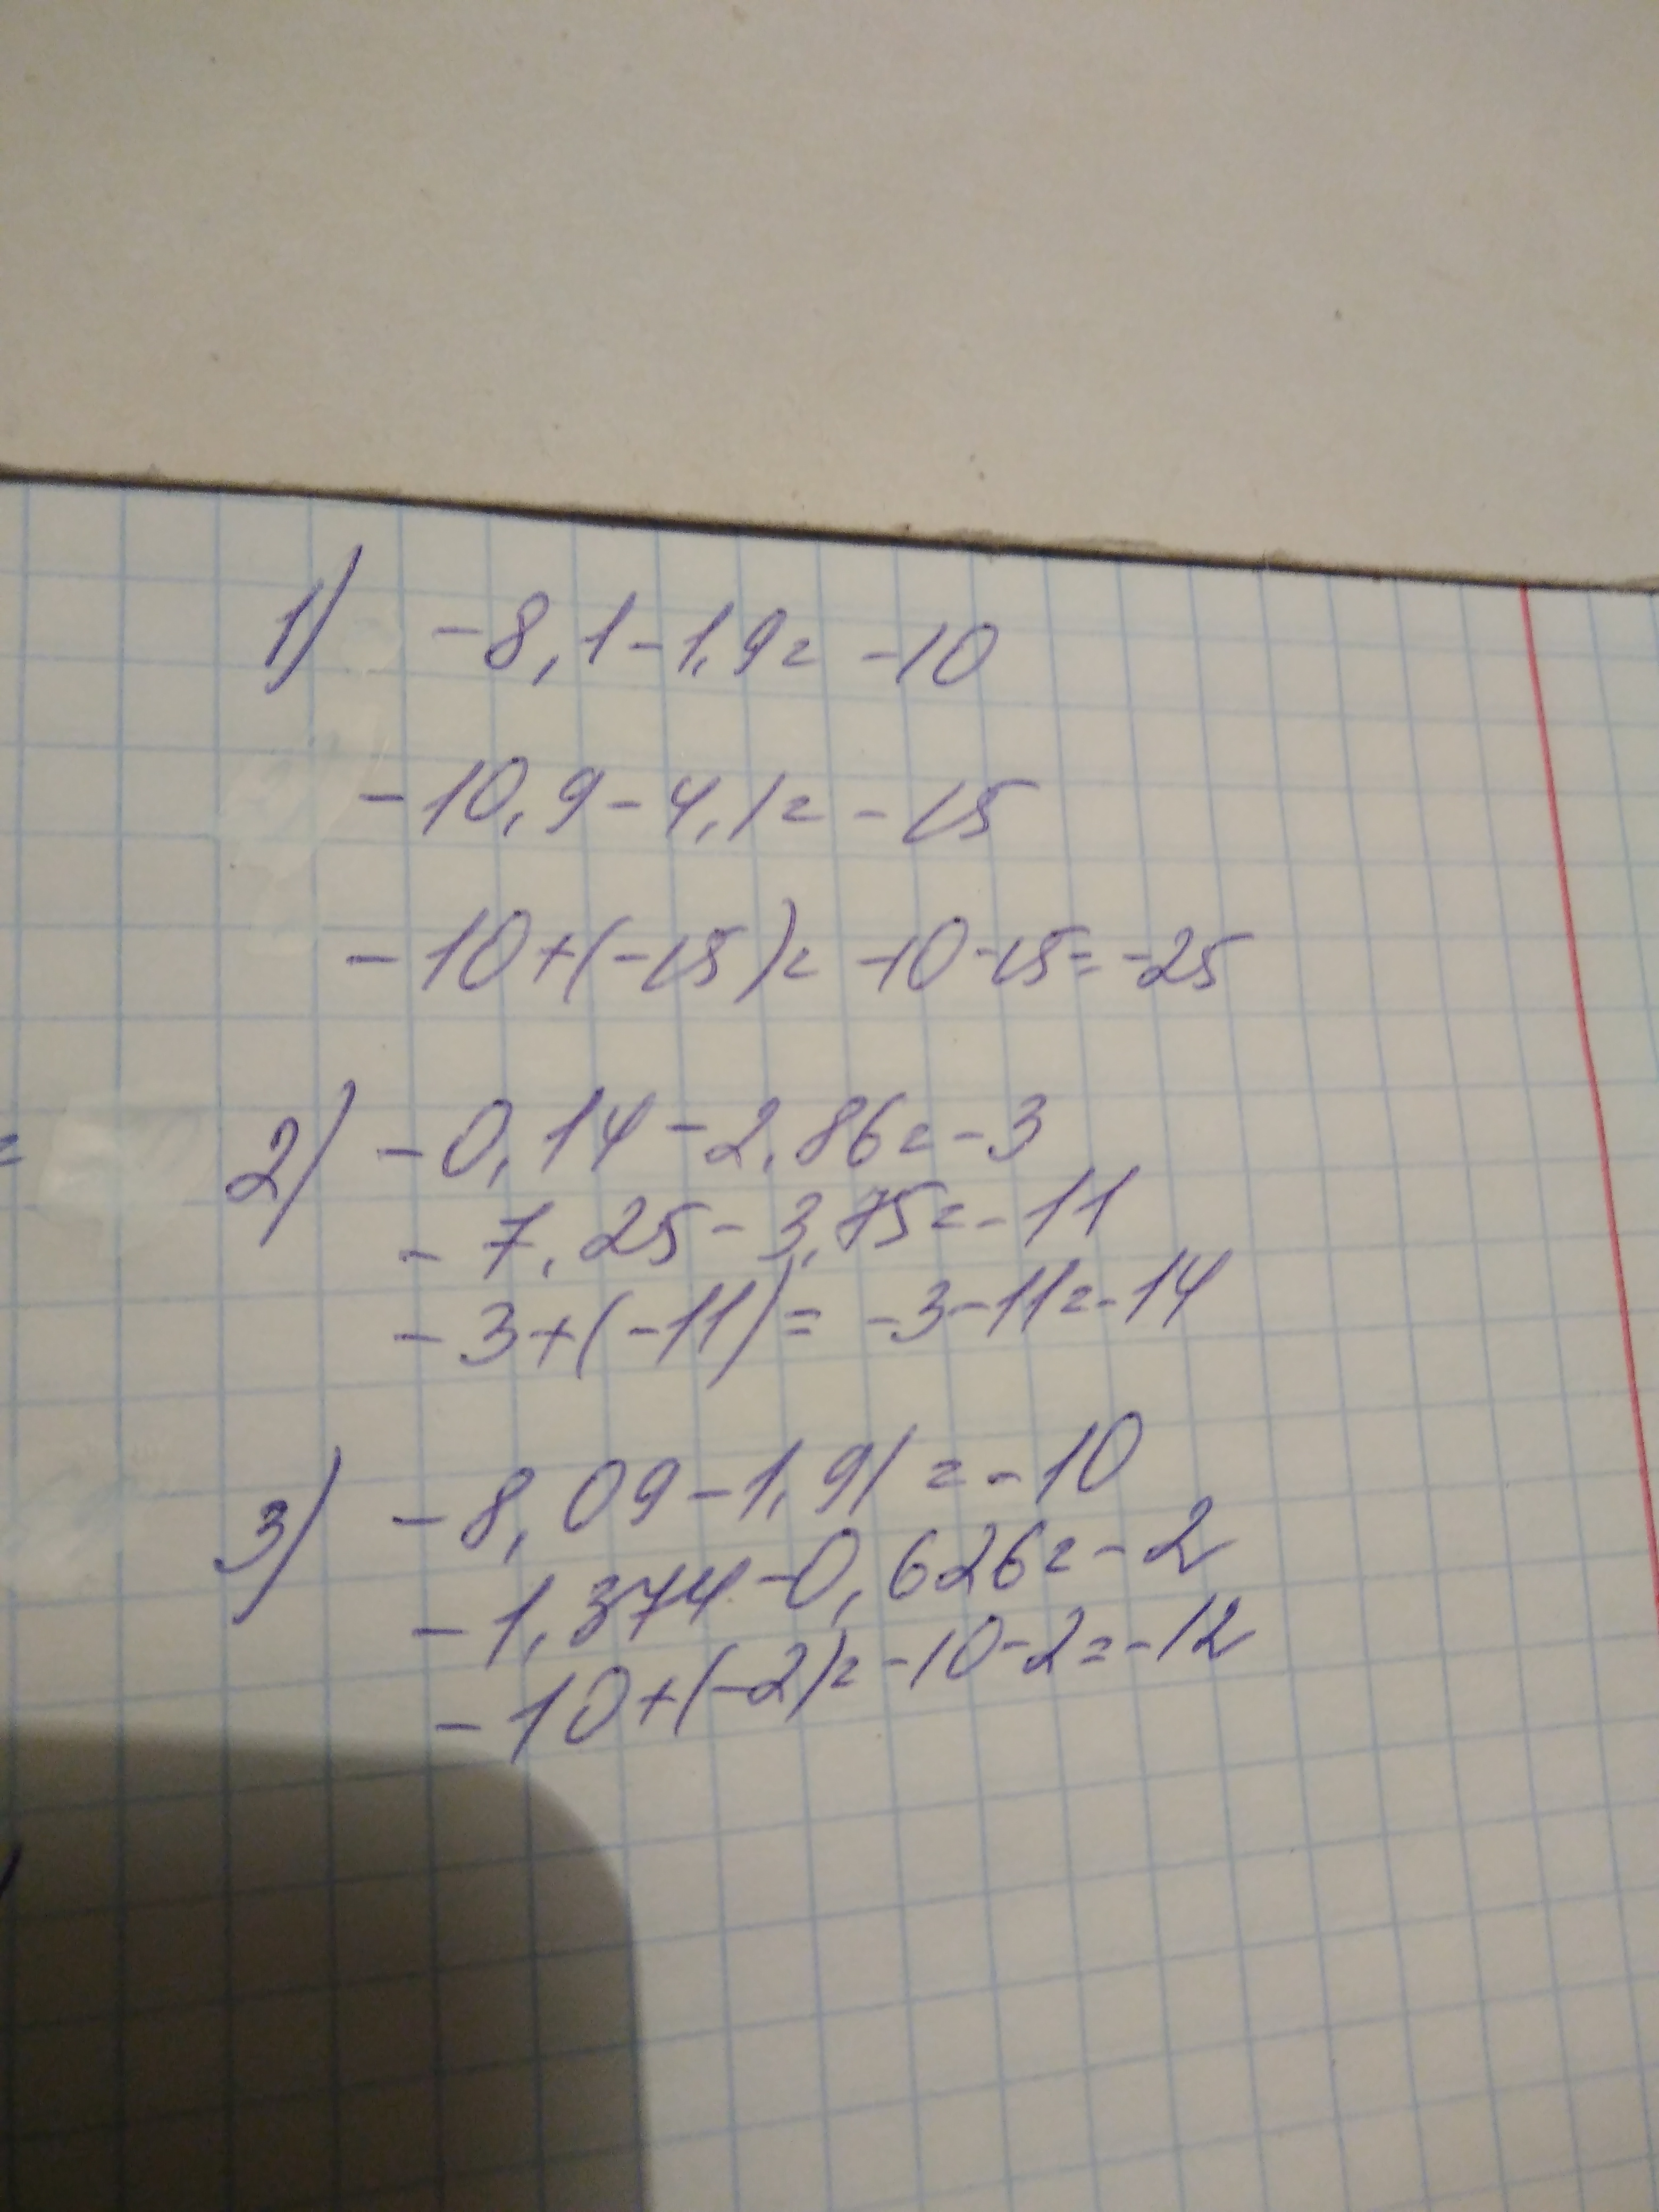 1) -8,1-1,9= -10
-10,9-4,1= -15
-10+(-15)= -10-15=-25
2) -0,14-2,86=-3
-7,25-3,75=-11
-3+(-11)= -3-11=-14
3) -8,09-1,91=-10
-1,374-0,626=-2
-10+(-2)=-10-2=-12
=